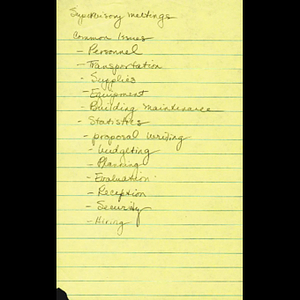 Supervisory meetings
Common Issues
- Personnel
- Transportation
- Supplies
- Equipment
- Building maintenance
- Statistics
- proposal writing
- budgeting
- Planning
- Evaluation
- Reception
- Security
- Hiring